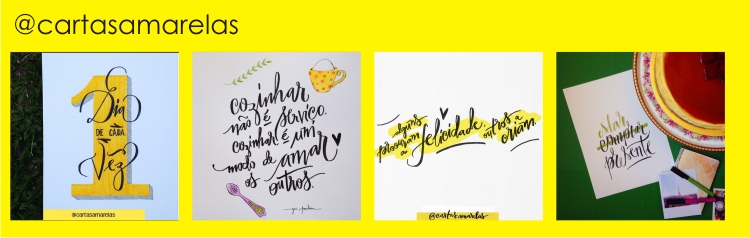 @cartasamarelas
1
Dia
DE CADA
Vez
@cartasamarelas
cozinhar
não é serviço.
cozinhar é um
modo de amar
os outros.
alguns
procuram
a
felicidade,
outros a
criam.
@cartasamarelas
estar
presente